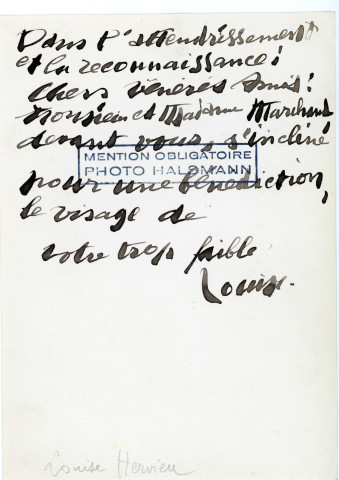 Dans l'attendrissement
et la reconnaissance!
Chers vénérés Amis!
Monsieur et Madame Marchand
devant vous, s'incline
MENTION OBLIGATOIRE
PHOTO HALSMANN
pour une bénédiction,
le visage de
votre trop faible
Louise.
Louise Hervieu